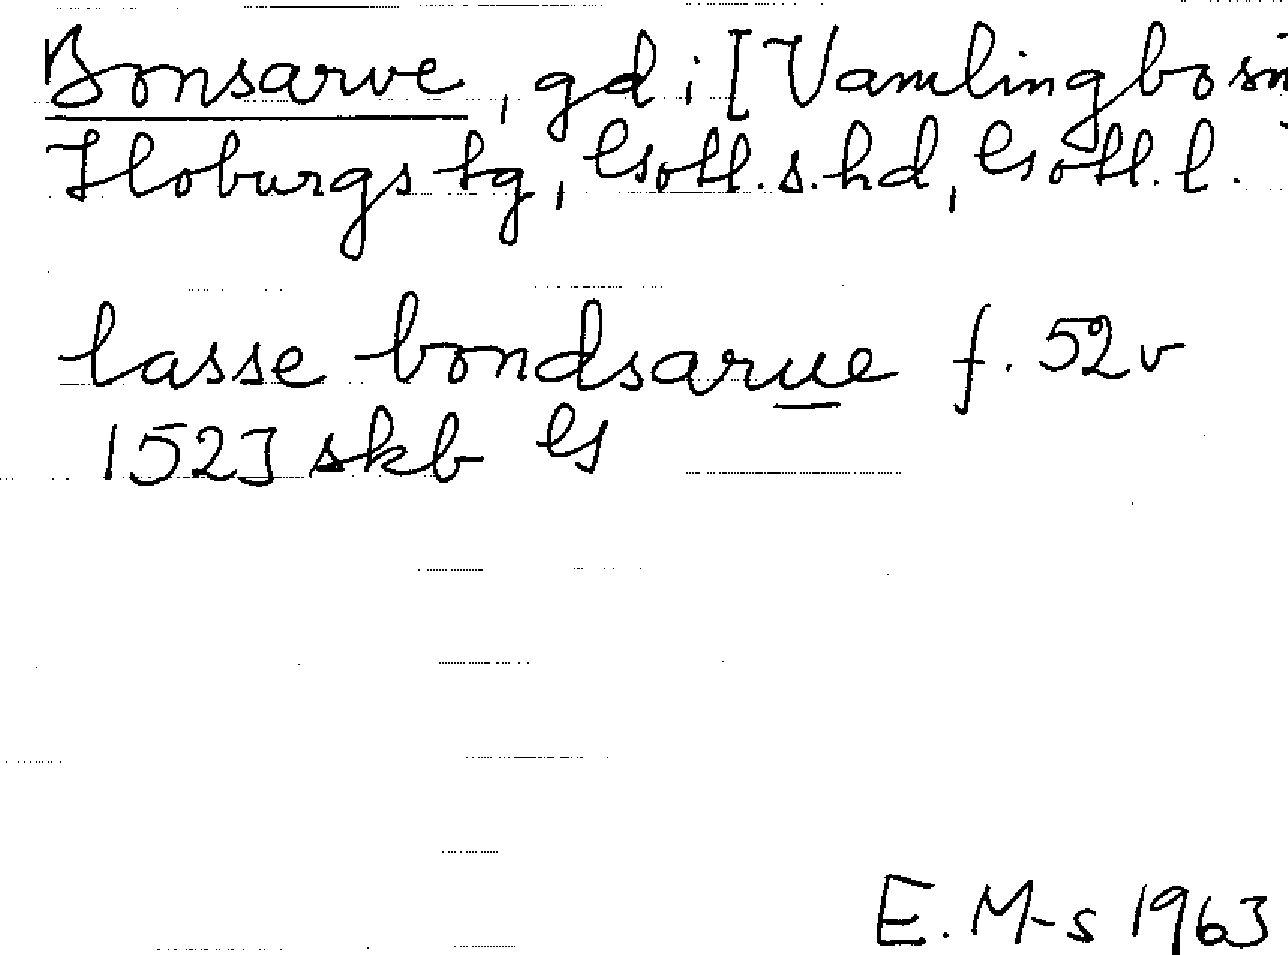 Bonsarve, gd i [Vamlingbo sn
Hoburgs tg, Gotl. s. hd, Gotl. l.
lasse bondsarue f. 52v
1523 skb G
E. M-s 1963